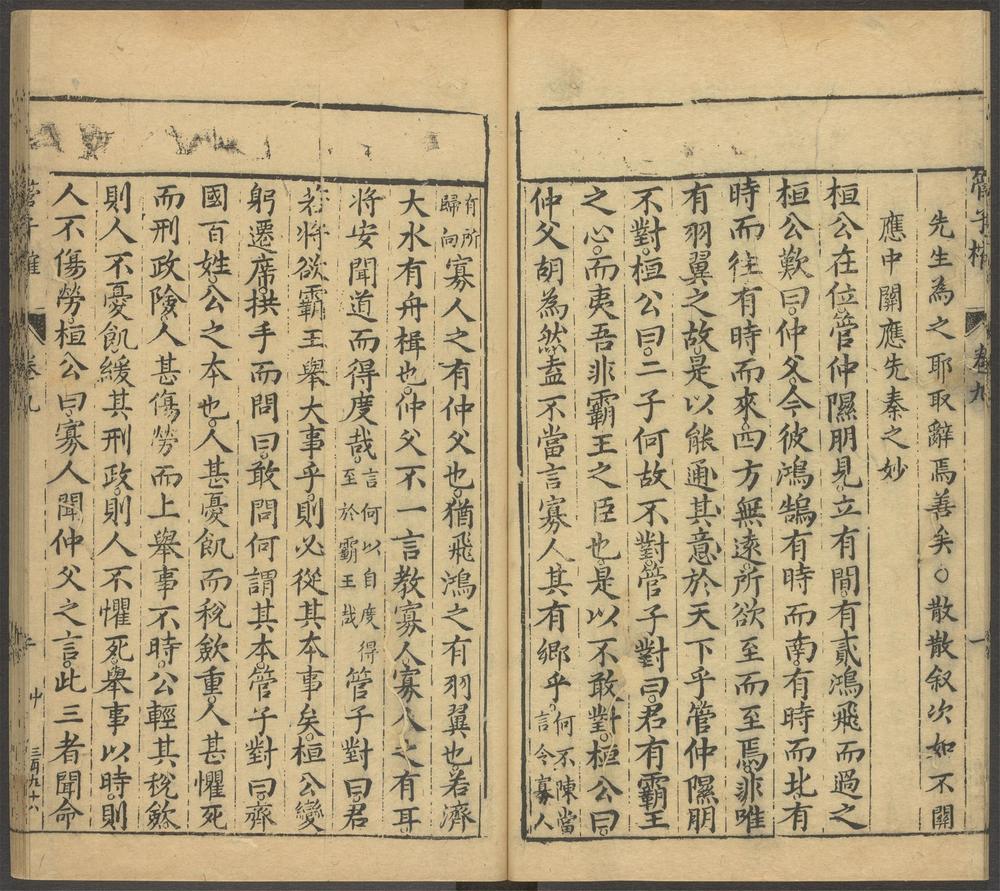 先生為之耶取辭焉善矣〇散散叙次如不關
應中關應先秦之妙
桓公在位管仲隰朋見立有間有貳鴻飛而過之
桓公歎曰仲父今彼鴻鵠有時而南有時而北有
時而往有時而來四方無遠所欲至而至焉非唯
有羽翼之故是以能通其意於天下乎管仲隰朋
不對桓公曰二子何故不對管子對曰君有霸王
之心而夷吾非霸王之臣也是以不敢對桓公曰
仲父胡為然盍不當言寡人其有鄉乎何不陳當言令寡人
有所歸向寡人之有仲父也猶飛鴻之有羽翼也若濟
大水有舟楫也仲父不一言教寡人寡人之有耳
將安聞道而得度哉言何以自度得至於霸王哉管子對曰君
若將欲霸王舉大事乎則必從其本事矣桓公變
躬遷席拱手而問曰敢問何謂其本管子對曰齊
國百姓公之本也人甚憂飢而稅斂重人甚懼死
而刑政險人甚傷勞而上舉事不時公輕其稅斂
則人不憂飢緩其刑政則人不懼死舉事以時則
人不傷勞桓公曰寡人聞仲父之言此三者聞命
管子榷 卷九